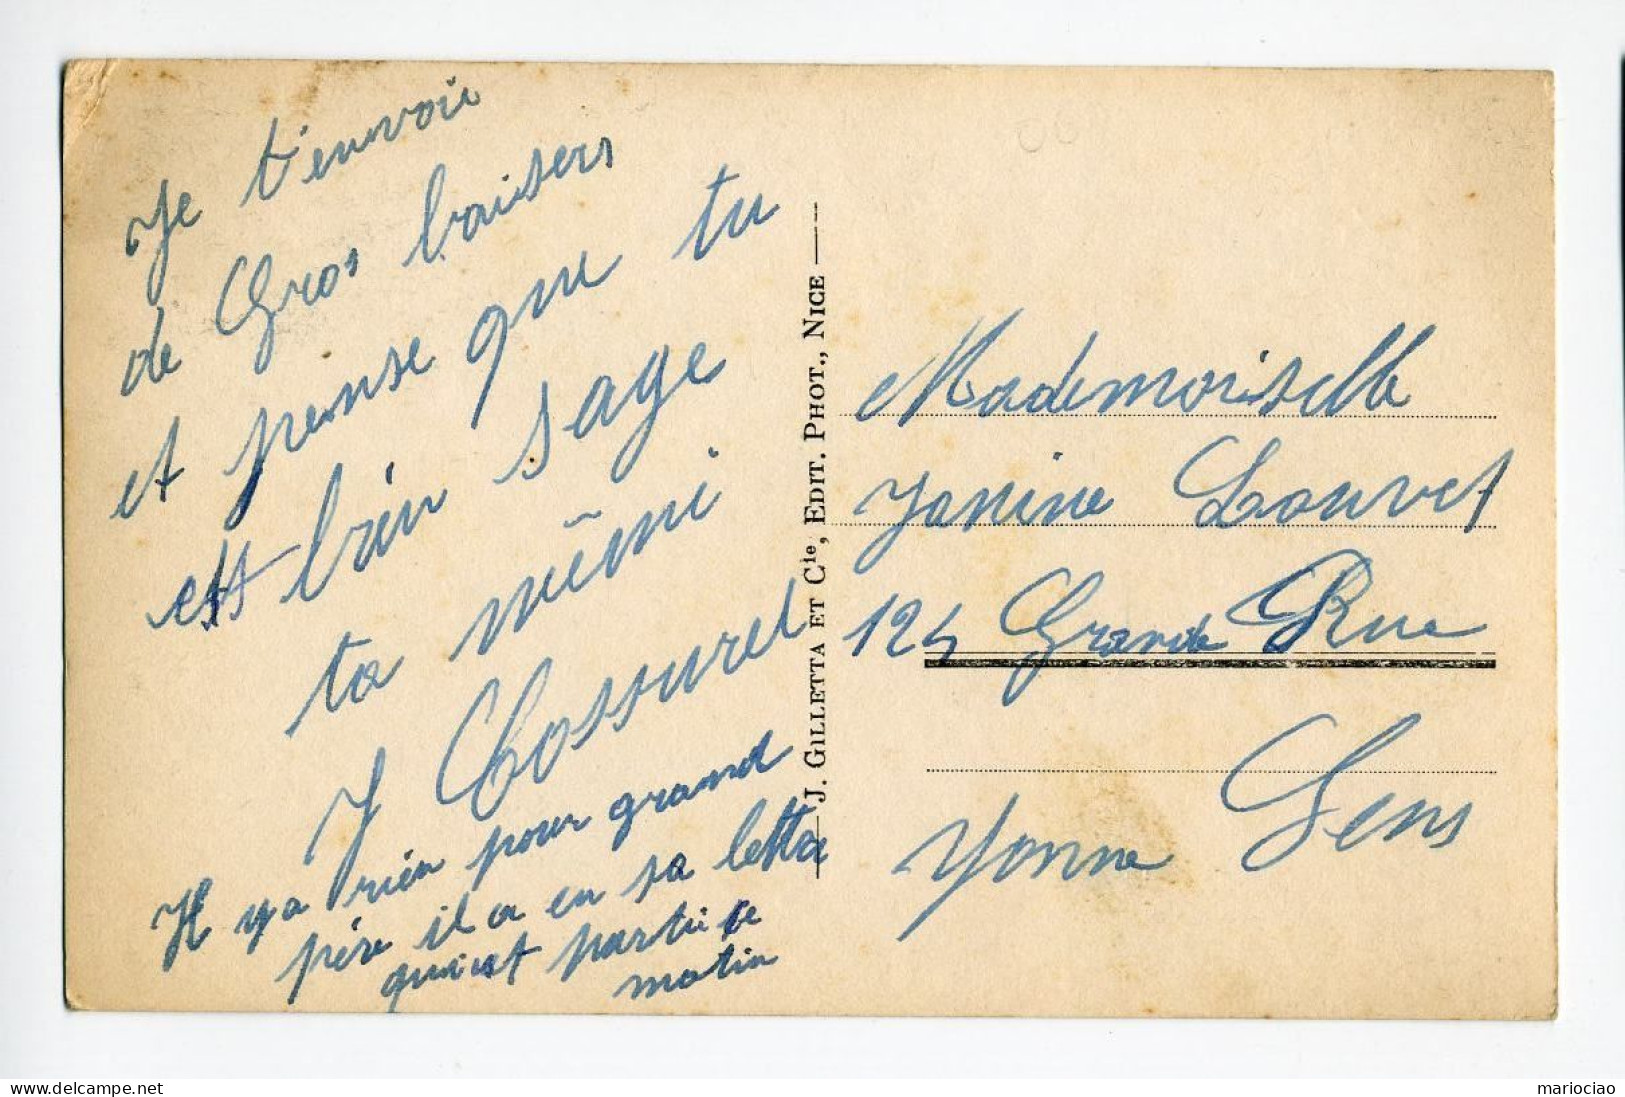 Je t'envoie
de Gros baisers
et pense que tu
est bien sage
ta mémé
J
Il y a rien pour grand
père il a eu sa lettre
qui est partie ce
matin
J. GILLETTA ET Cie, EDIT. PHOT., NICE
Mademoiselle
Janine Louvet
124 Grande Rue
Sens
Yonne
mariociao